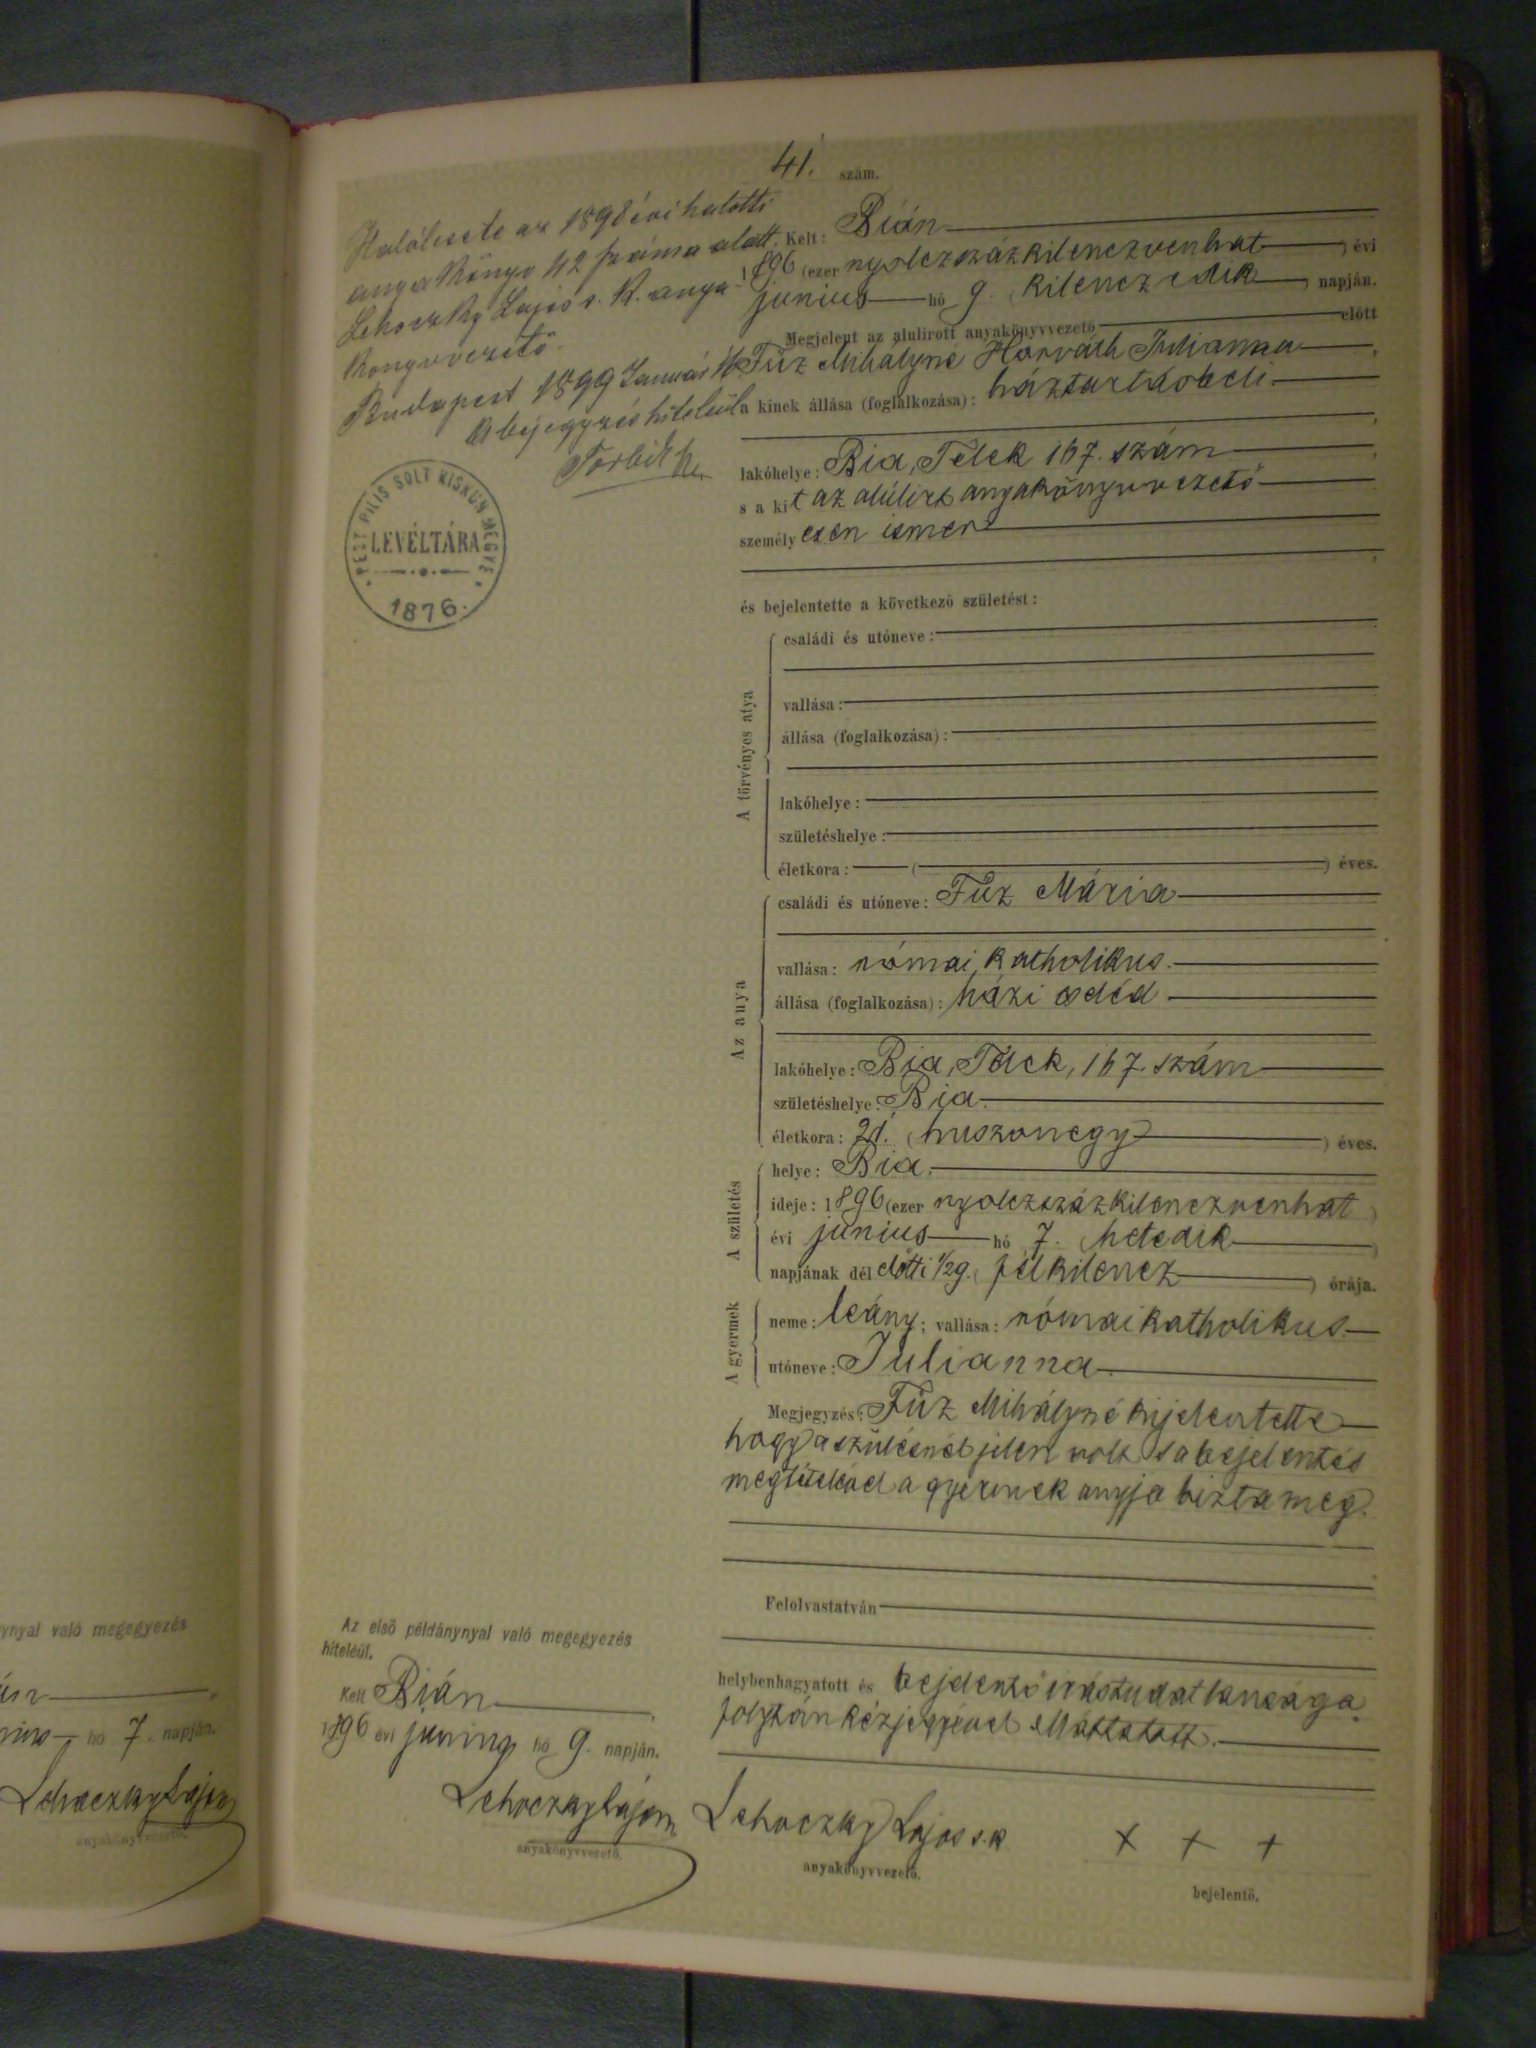 41. szám.
Halálesete az 1898 évi halotti
anyakönyv 42 száma alatt.
Lehoczky Lajos s. k. anya-
könyvvezető.
Budapest 1899 Január
A bejegyzés hiteléül
PEST PILIS SOLT KISKUN MEGYE
LEVÉLTÁRA
1876.
Kelt: Bián
1896 (ezer nyolczszázkilenczvenhat) évi
junius hó 9. (kilenczedik) napján.
Megjelent az alulirott anyakönyvvezető előtt
Füz Mihályné Horváth Julianna,
a kinek állása (foglalkozása): háztartásbeli
lakóhelye: Bia, Telek 167. szám
s a kit az alulirt anyakönyvvezető
személyesen ismer
és bejelentette a következő születést:
A törvényes atya
családi és utóneve:
vallása:
állása (foglalkozása):
lakóhelye:
születéshelye:
életkora: ( ) éves.
Az anya
családi és utóneve: Füz Mária
vallása: római katholikus.
állása (foglalkozása): házi cseléd
lakóhelye: Bia, Telek, 167. szám
születéshelye: Bia.
életkora: 21. (huszonegy) éves.
A születés
helye: Bia.
ideje: 1896 (ezer nyolczszázkilenczvenhat)
évi junius hó 7. (hetedik)
napjának délelőtti ½9. (félkilencz) órája.
A gyermek
neme: leány; vallása: római katholikus.
utóneve: Julianna.
Megjegyzés: Füz Mihályné kijelentette
hogy a szülésnél jelen volt s a bejelentés
megtételével a gyermek anyja bizta meg.
Felolvastatván
helybenhagyatott és bejelentő irástudatlansága
folytán kézjegyével elláttatott.
Lehoczky Lajos s. k.
anyakönyvvezető.
x + +
bejelentő.
Az első példánynyal való megegyezés
hiteléül.
Kelt Bián
1896 évi junius hó 9. napján.
Lehoczky Lajos
anyakönyvvezető.
ynyal való megegyezés
hó 7. napján.
Lehoczky Lajos
anyakönyvvezető.